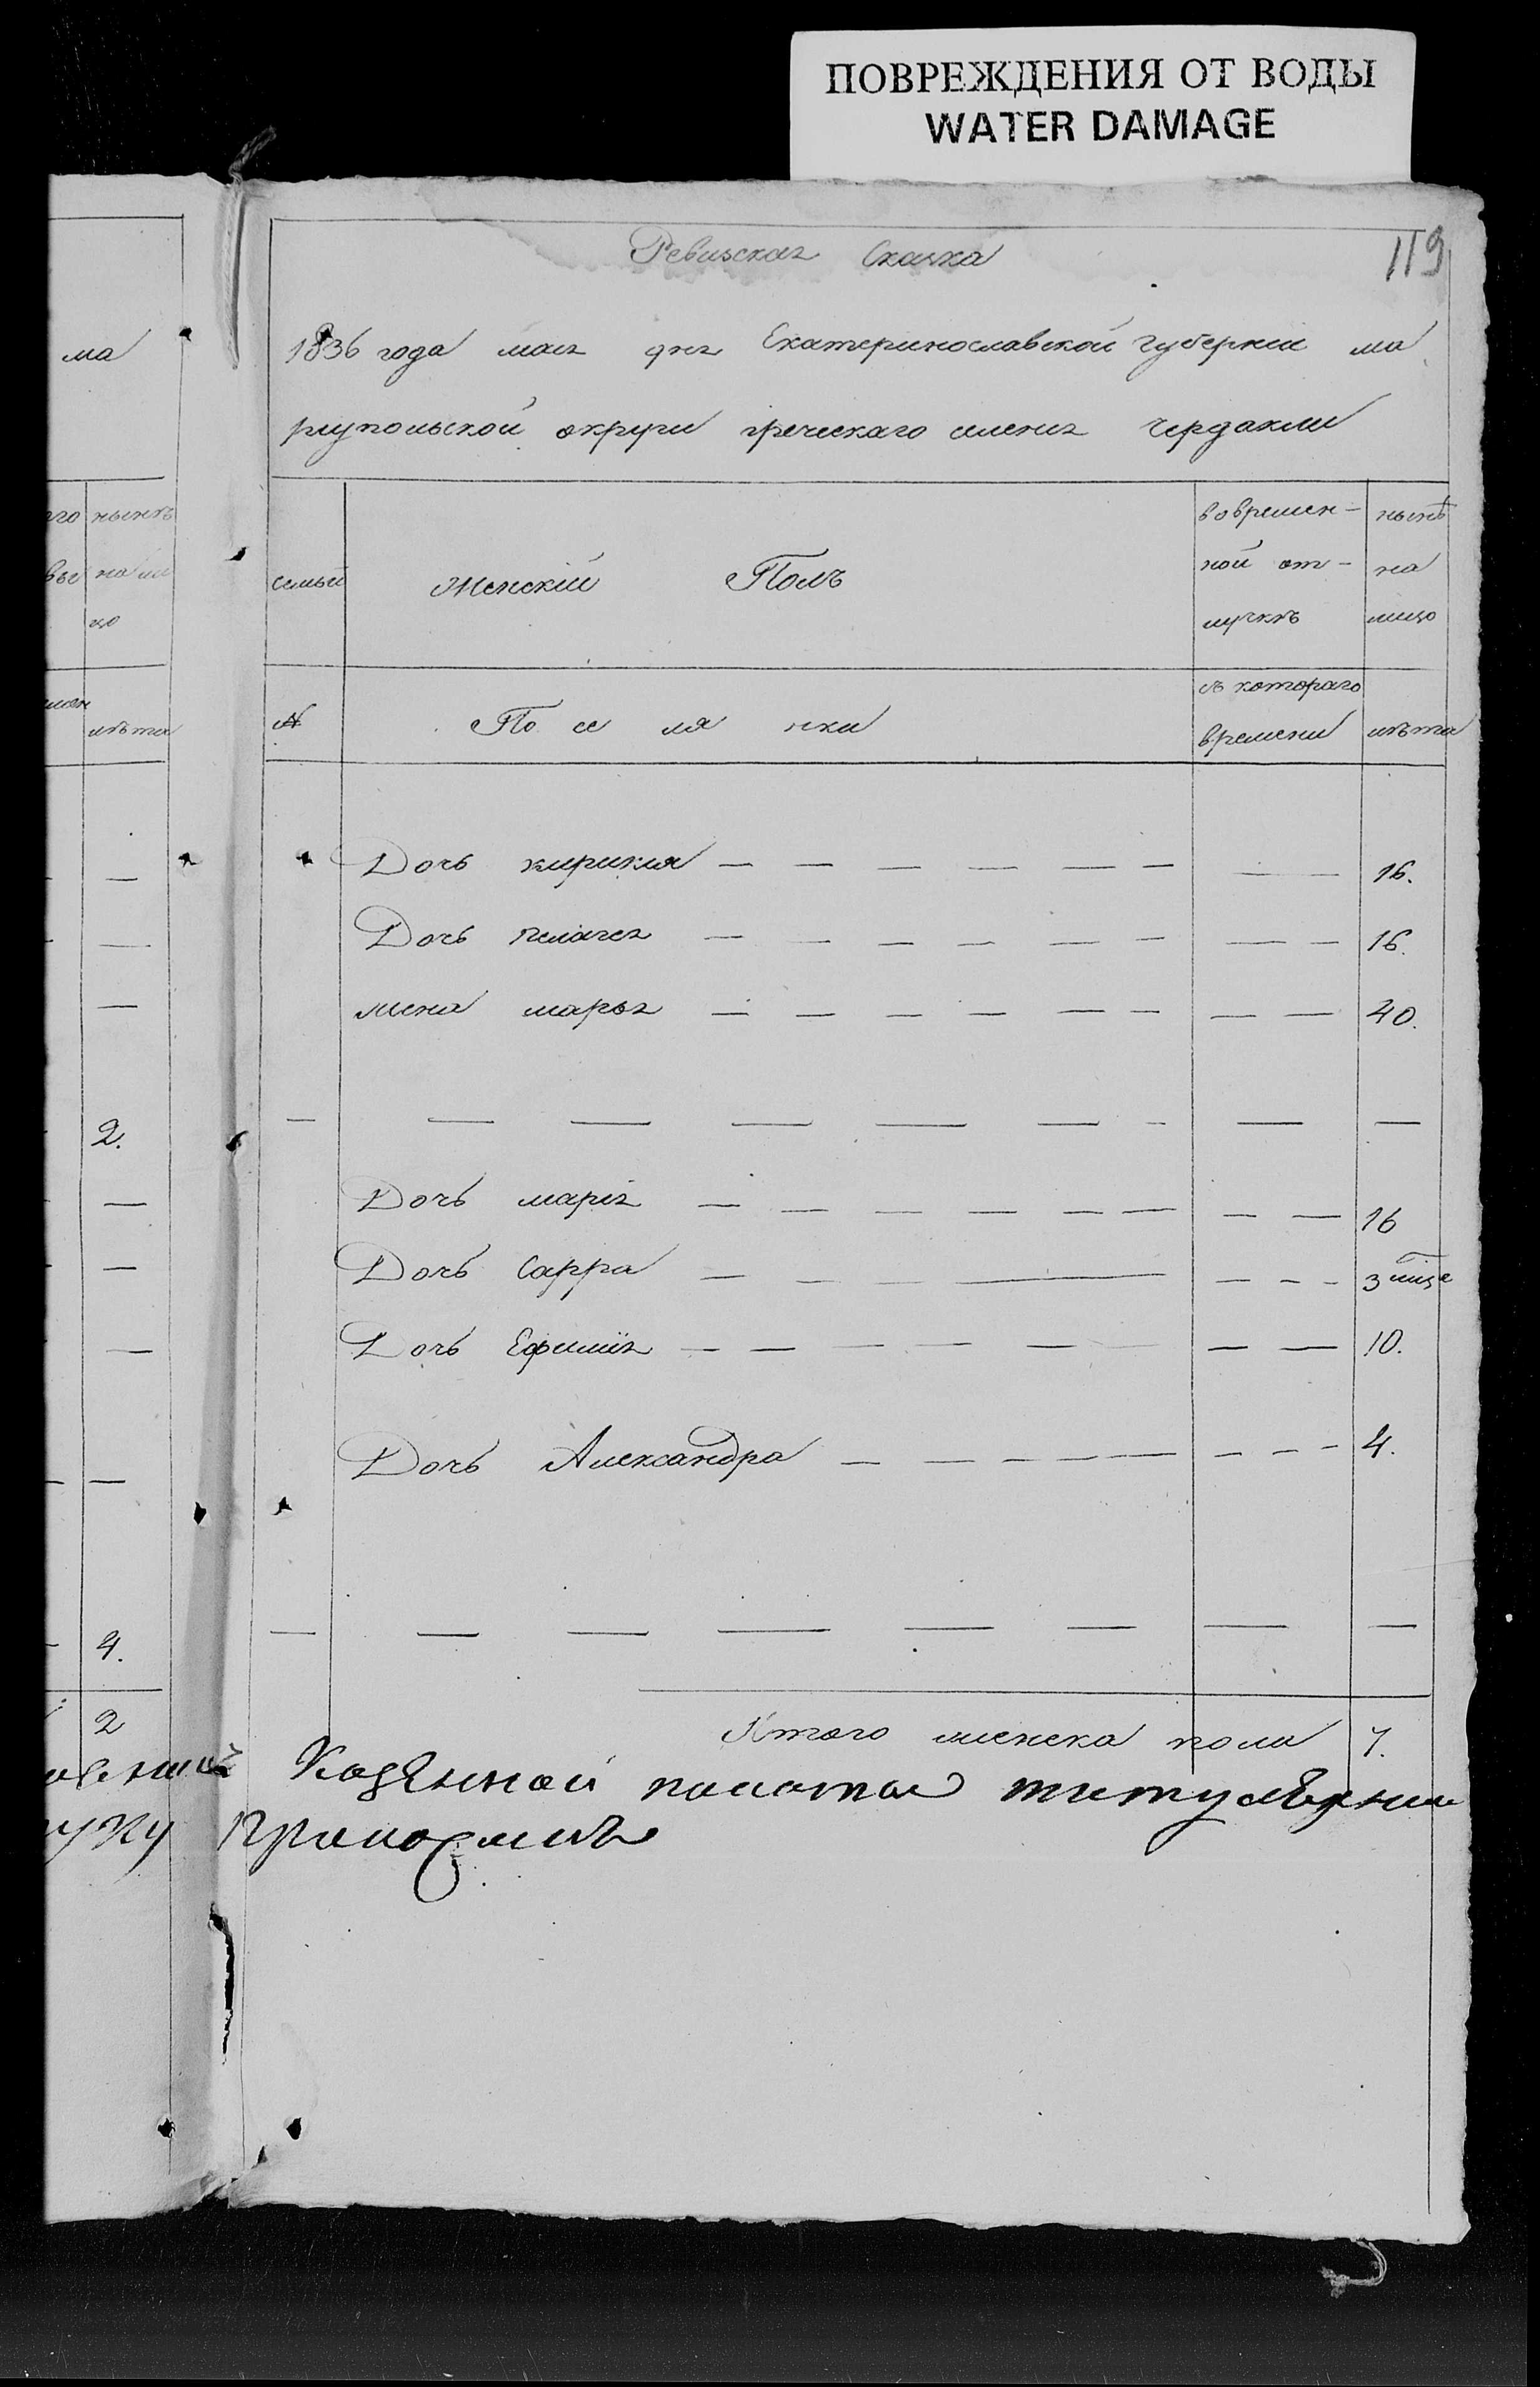 ПОВРЕЖДЕНИЯ ОТ ВОДЫ
WATER DAMAGE
Ревизская Сказка
119
1836 года мая дня Екатеринославской губернии ма
риупольской округи греческаго селения чердакли
ма
семьи
Женскій Полъ
вовремен-
ной от-
лучкѣ
нынѣ
на
лицо
нынѣ
на ли
цо
лѣта
№
По се ля нки
съ котораго
времени
лѣта
Дочь кирикия — — — — — — — — 16.
Дочь пелагея — — — — — — — — 16.
жена марья — — — — — — — — 40.
— — — — — — — — —
2.
Дочь марія — — — — — — — — 16
Дочь Сарра — — — — — — — 3 мѣсе
Дочь Ефимія — — — — — — — — 10.
Дочь Александра — — — — — — — — 4.
— — — — — — — — —
4.
2
Итого женска пола 7.
Казенной палаты титулярный